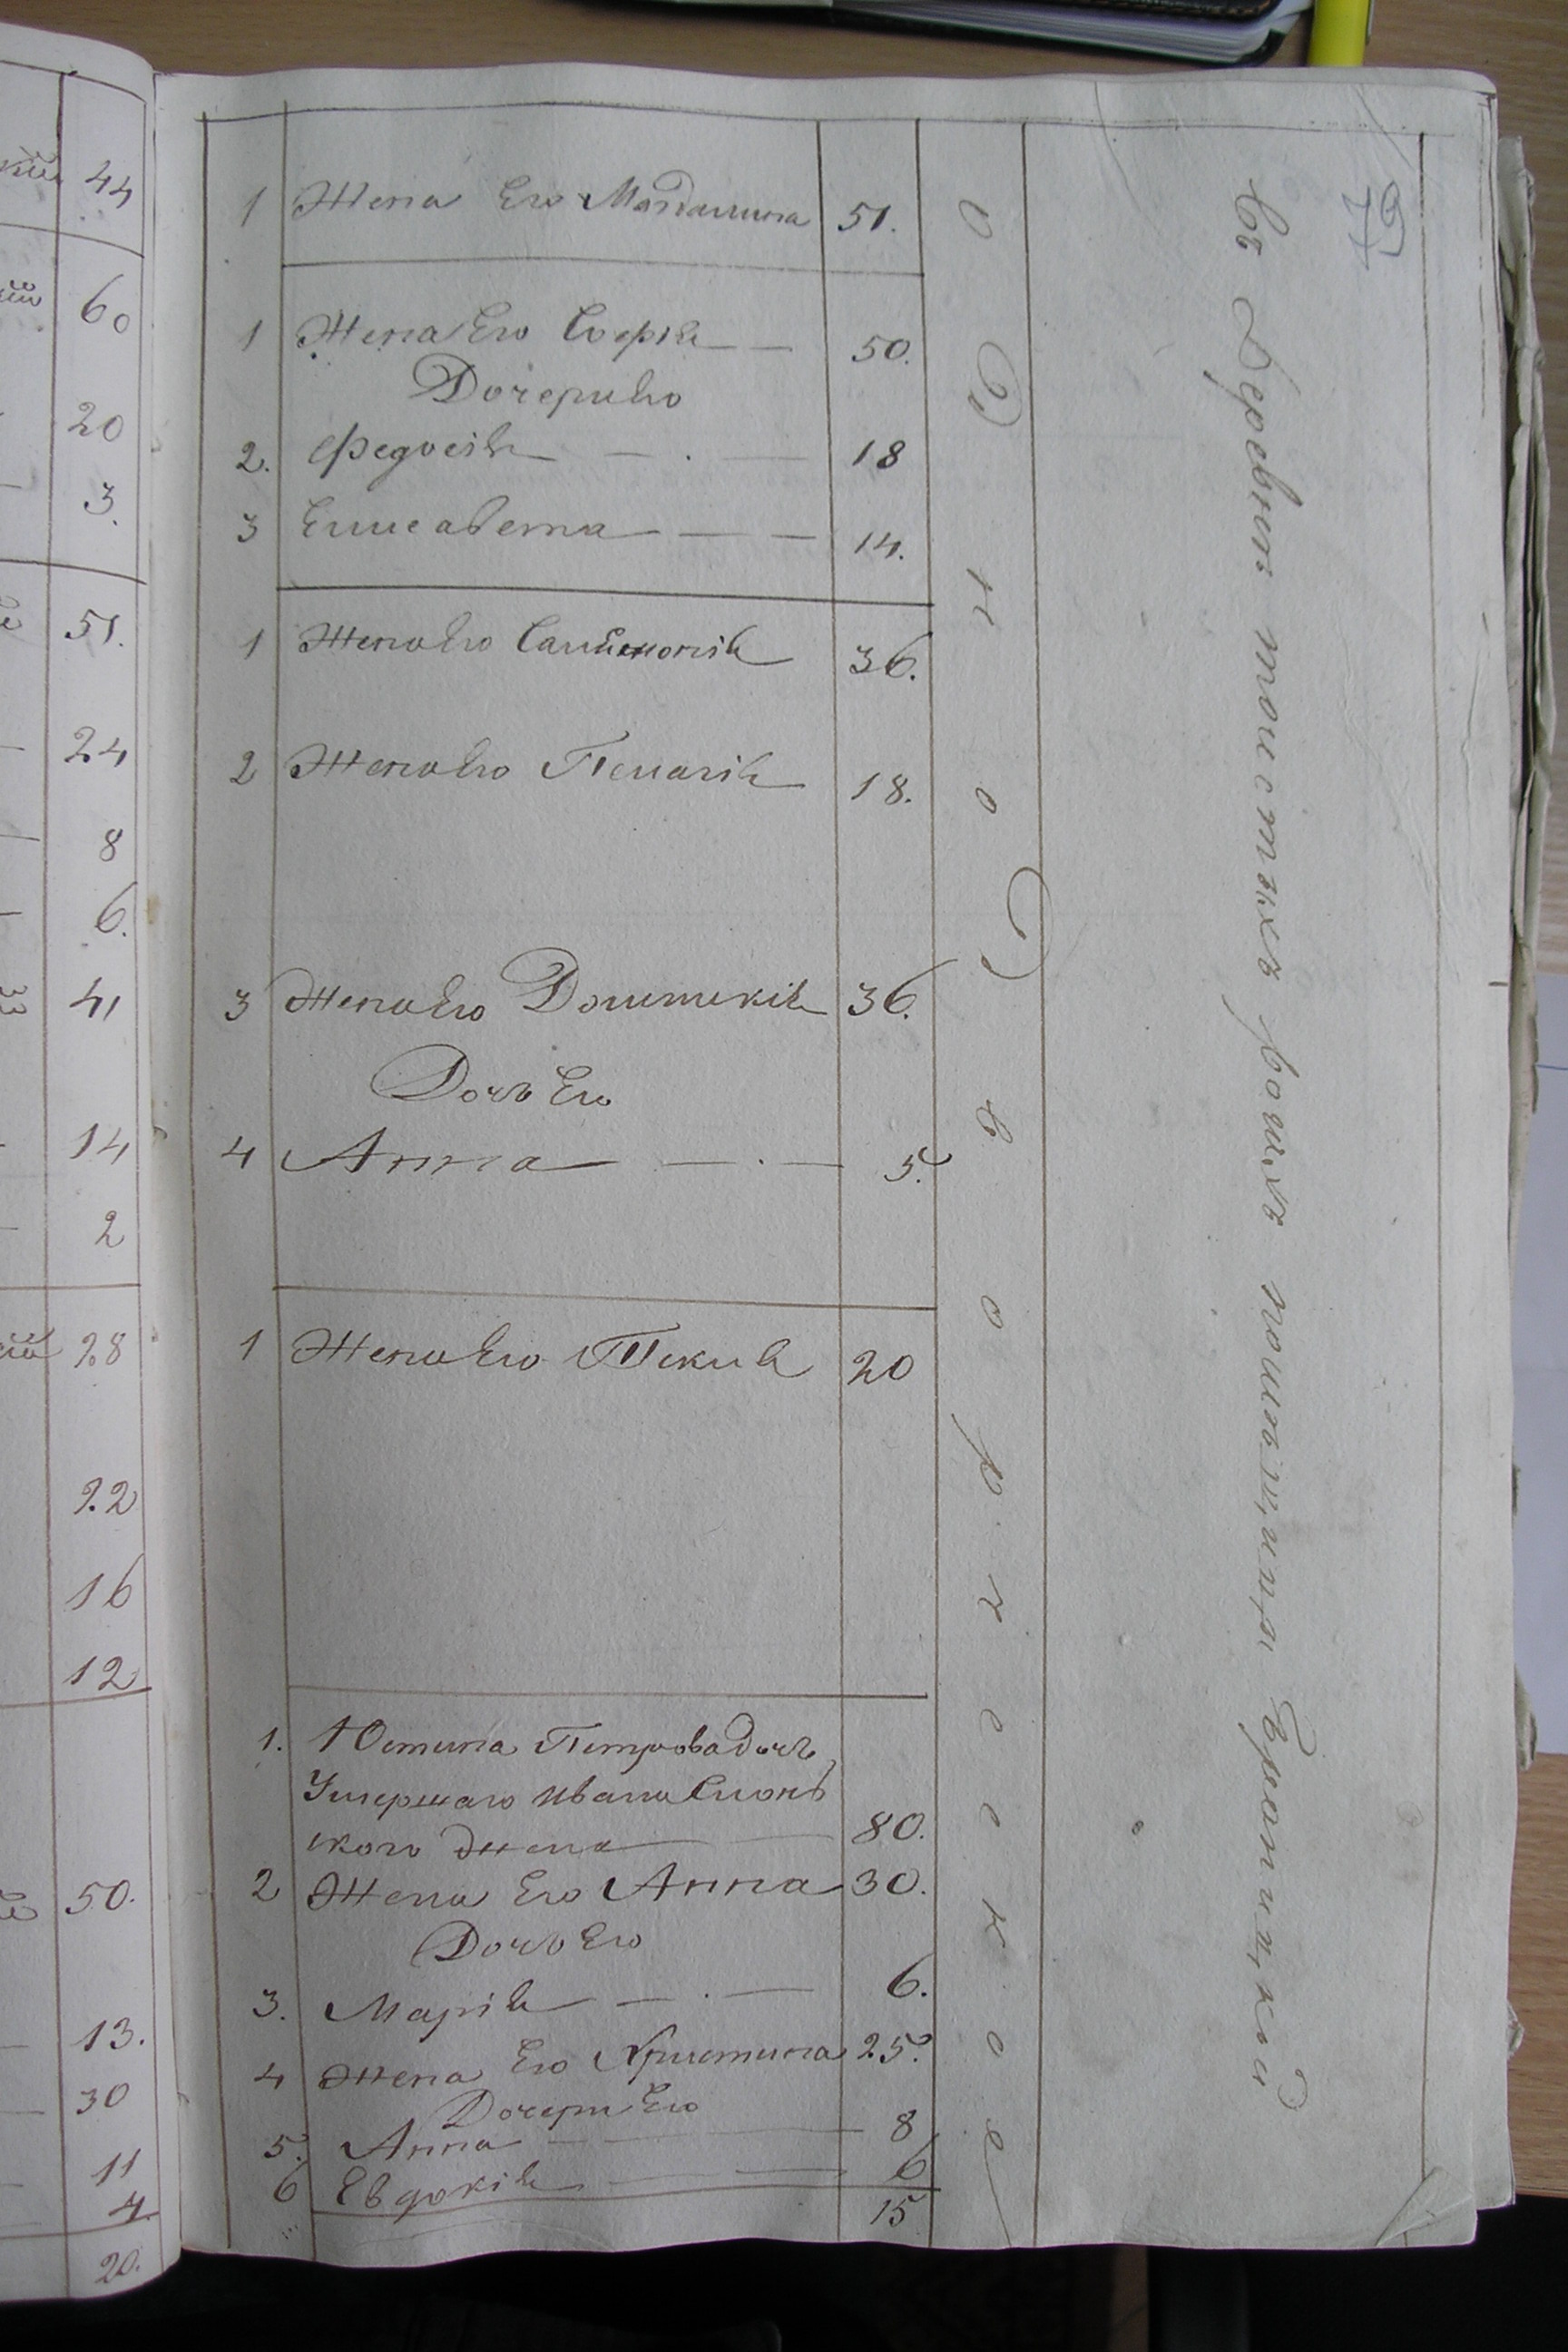 79
1 Жена Его Магдалина 51.
1 Жена Его Софія 50.
Дочери Его
2. Федосія 18
3 Елисавета 14.
1 Жена Его 36.
2 Жена Его Пелагія 18.
3 Жена Его Доминикія 36.
Дочь Его
4 Анна 5.
1 Жена Его Текля 20
1. Юстина Петрова дочь
Умершаго Ивана Слонѣв
ского жена 80.
2 Жена Его Анна 30.
Дочь Его
3. Марія 6.
4 Жена Его Христина 25.
Дочери Его
5. Анна 8
6 Евдокія 6
15
О д н о д в о р ч е с к о е
въ деревнѣ
помѣщика
44
60
20
3.
51.
24
8
6.
41
14
2
28
22
16
12
50.
13.
30
11
4.
20.